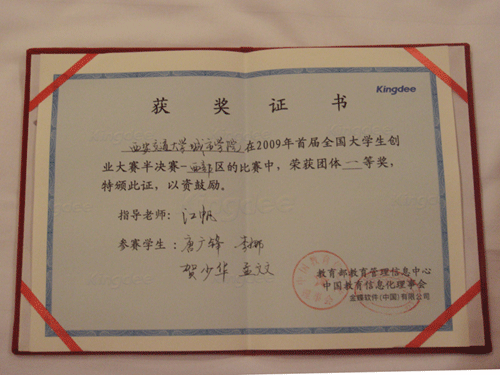 Kingdee
获奖证书
西安交通大学城市学院在2009年首届全国大学生创
业大赛半决赛-西部区的比赛中，荣获团体一等奖，
特颁此证，以资鼓励。
指导老师：江帆
参赛学生：唐广锋 李娜
贺少华 孟文文
教育部教育管理信息中心
中国教育信息化理事会
金蝶软件(中国)有限公司